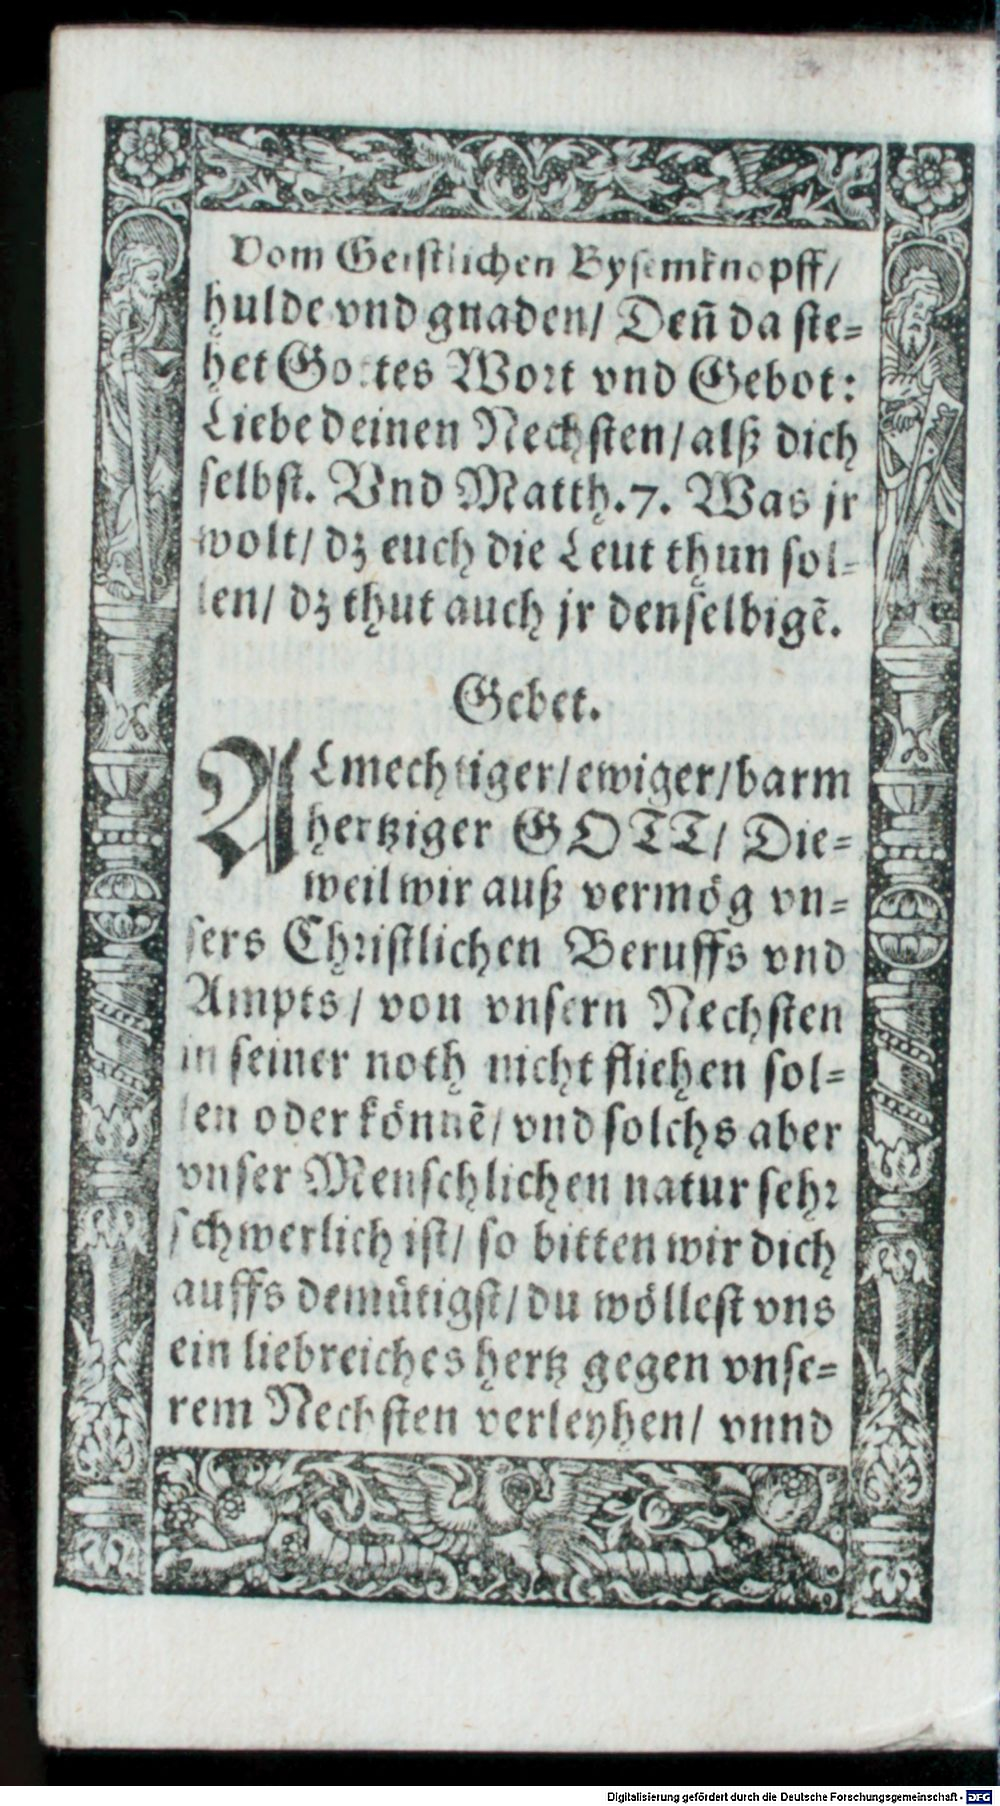 Vom Geistlichen Bysemknopff/
hulde vnd gnaden/ Deñ da ste=
het Gottes Wort vnd Gebot:
Liebe deinen Nechsten/ alß dich
selbst. Vnd Matth. 7. Was jr
wolt/ dz euch die Leut thun sol=
len/ dz thut auch jr denselbigẽ.
Gebet.
ALmechtiger/ ewiger/ barm
hertziger GOTT/ Die=
weil wir auß vermög vn=
sers Christlichen Beruffs vnd
Ampts/ von vnsern Nechsten
in seiner noth nicht fliehen sol=
len oder könnẽ/ vnd solchs aber
vnser Menschlichen natur sehr
schwerlich ist/ so bitten wir dich
auffs demütigst/ du wöllest vns
ein liebreiches hertz gegen vnse=
rem Nechsten verleyhen/ vnnd
Digitalisierung gefördert durch die Deutsche Forschungsgemeinschaft - DFG